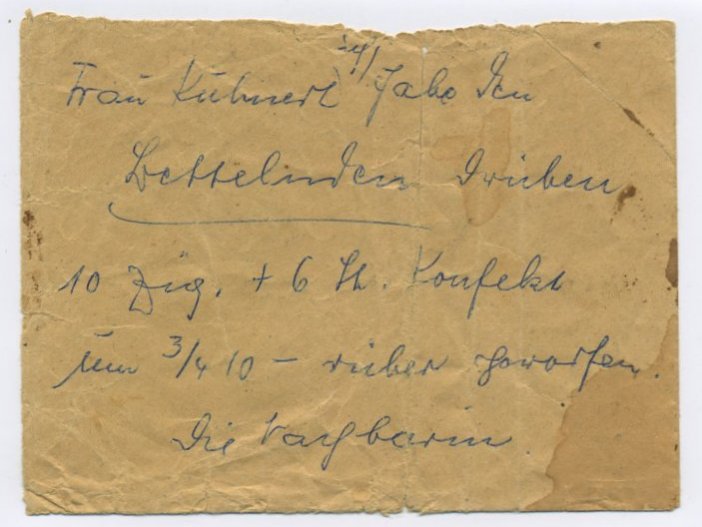 Frau Kühnert habe den
Bettelnden drüben
10 Zig. + 6 St. Konfekt
um 3/4 10 – rüber geworfen.
Die Nachbarin